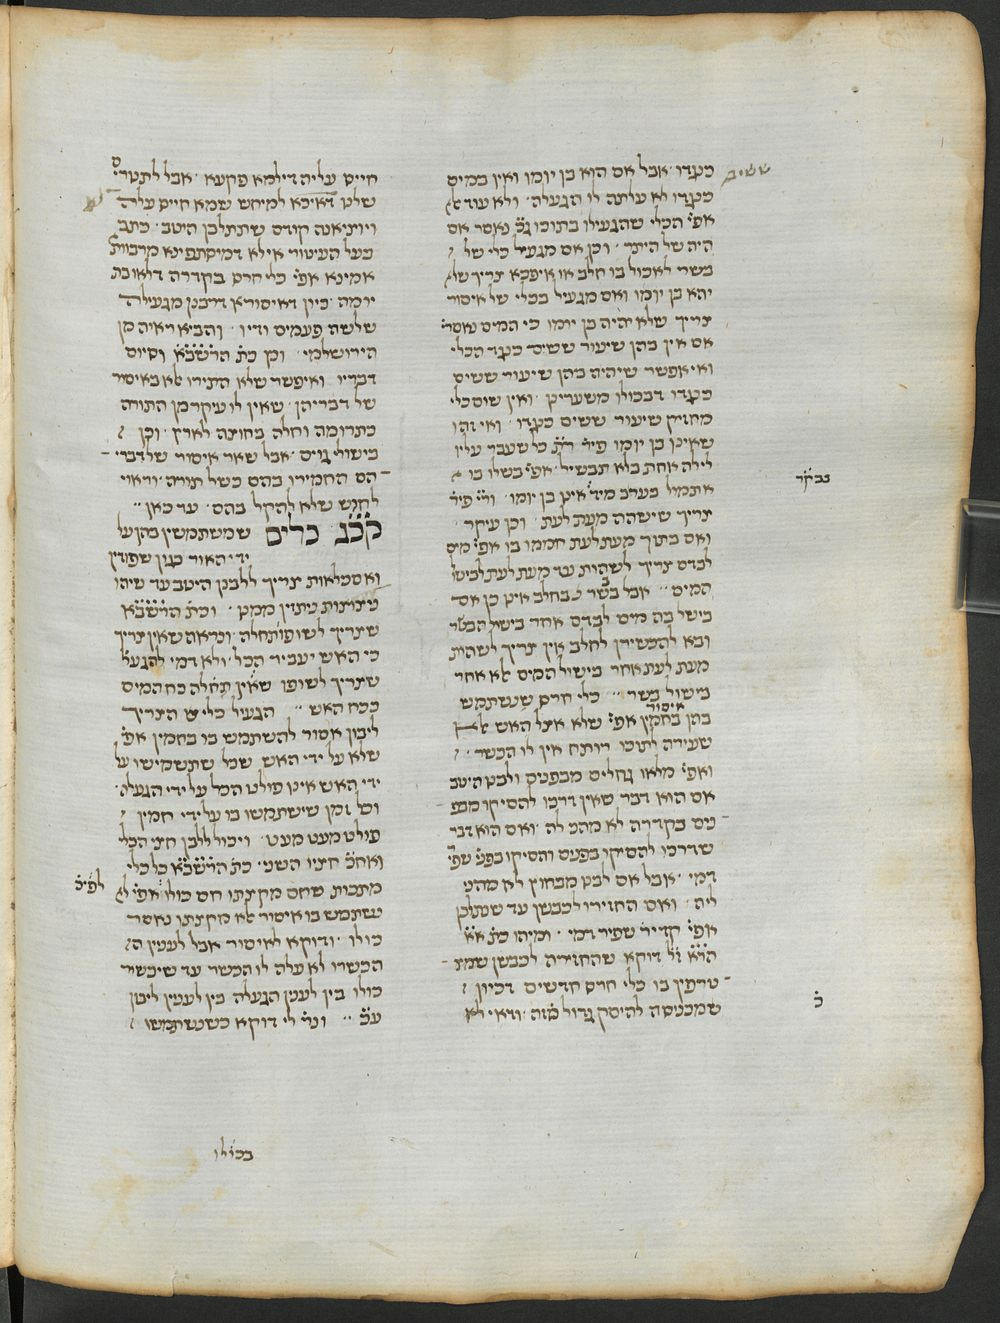 ששים
כנגדו אבל אם הוא בן יומו ואין במים
כנגדו לא עלתה לו הגעלה ולא עוד אלא
אפי' הכלי שהגעילו בתוכו גם נאסר אם
היה של היתר וכן אם מגעיל כלי של
בשרי לאכול בו חלב או איפכא צריך שלא
יהא בן יומו ואם מגעיל בכלי של איסור
צריך שלא יהיה בן יומו כי המים נאסרי'
אם אין בהן שיעור ששים כנגד הכלי
ואי אפשר שיהיה בהן שיעור ששים
כנגדו דבכולו משערינן ואין שום כלי
מחזיק שיעור ששים כנגדו ואי זהו
שאינו בן יומו פיר' ר"ת כל שעבר עליו
לילה אחת בלא תבשיל אפי' בשלו בו
נבקר
אתמול בערב מיד אינו בן יומו ור"י פיר'
צריך שישהה מעת לעת וכן עיקר
ואם בתוך מעת לעת חממו בו אפי' מים
לבדם צריך לשהות עד מעת לעת לבישול
המים אבל בשר בחלב אינו כן אם
בישל בה מים לבדם אחר בישול הבשר
ובא להכשירן לחלב אין צריך לשהות
מעת לעת אחר בישול המים אלא אחר
בישול בשר כלי חרם שנשתמש
איסור
בהן בחמין אפי' שלא אצל האש אלא
שעירה לתוכו רותח אין לו הכשר
ואפי' מלאו גחלים מבפנים ולבנו היטב
אם הוא דבר שאין דרכו להסיקו מבפ
נים בקדרה לא מהני לה ואם הוא דבר
שדרכו להסיקו בפנים והסיקו בפני' שפי'
דמי אבל אם לבנו מבחוץ לא מהני
ליה ואם החזירו לכבשן עד שנתלבן
אפי' קדיר' שפיר דמי ומיהו כת' א"א
הרא"ש ז"ל דוקא שהחזירה לכבשן שמצ
טרפין בו כלי חרס חדשים דכיון
שמכניסה להיסק גדול כזה ודאי לא
כ'
חייס עליה דילמא פקעא אבל לתנורי'
שלנו דאיכא למיחש שמא חייס עלה
ויוציאנה קודם שתתלבן היטב כתב
בעל העיטור אילא דמיסתפינא מרבוותי
אמינא אפי' כלי חרס בקדרה דלאו בת
יומה כיון דאיסורא דרבנן מגעילה
שלשה פעמים ודיו והביא ראיה מן
הירושלמי וכן כת' הרשב"א וסיום
דבריו ואיפשר שלא התירו אלא באיסור
של דבריהן שאין לו עיקר מן התורה
כתרומה וחלה בחוצה לארץ וכן
בישולי גוים אבל שאר איסור שלדברי
הם החמירו בהם כשל תורה וראוי
לחוש שלא להקל בהם עד כאן
קכ"ג כלים שמשתמשין בהן על
ידי האור כגון שפודין
ואסכלאות צריך ללבנן היטב עד שיהו
ניצוצות ניתזין ממנו וכת' הרשב"א
שצריך לשופו תחלה ונראה שאין צריך
כי האש יעביר הכל ולא דמי להגעלה
שצריך לשופו שאין תחלה כח המים
ככח האש הגעיל כלי הצריך
ליבון אסור להשתמש בו בחמין אפי'
שלא על ידי האש שכל שתשמישו על
ידי האש אינו פולט הכל על ידי הגעלה
וכל זמן שישתמשו בו על ידי חמין
פולט מעט מעט ויכול ללבן חצי הכלי
ואח"כ חציו השני כת' הרשב"א כל כלי
לפי'כ
מתכות שחם מקצתו חם כולו אפי' לא
נשתמש בו איסור אלא מקצתו נאסר
כולו ודוקא לאיסור אבל לענין
הכשרו לא עלה לו הכשר עד שיכשיר
כולו בין לענין הגעלה בין לענין ליבון
ע"כ ונר' לי דוקא כשנשתמשו
בכולו